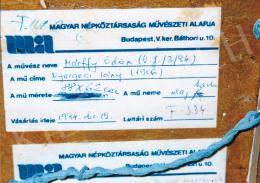 MAGYAR NÉPKÖZTÁRSASÁG MŰVÉSZETI ALAPJA
Budapest, V. ker. Báthori u. 10.
A művész neve Márffy Ödön
A mű címe Nyergesi lány (1906)
A mű mérete cm A mű neme
Vásárlás ideje 1984. Leltári szám F-334
MAGYAR NÉPKÖZTÁRSASÁG MŰVÉSZETI ALAPJA
Budapest, V. ker. Báthori u. 10.